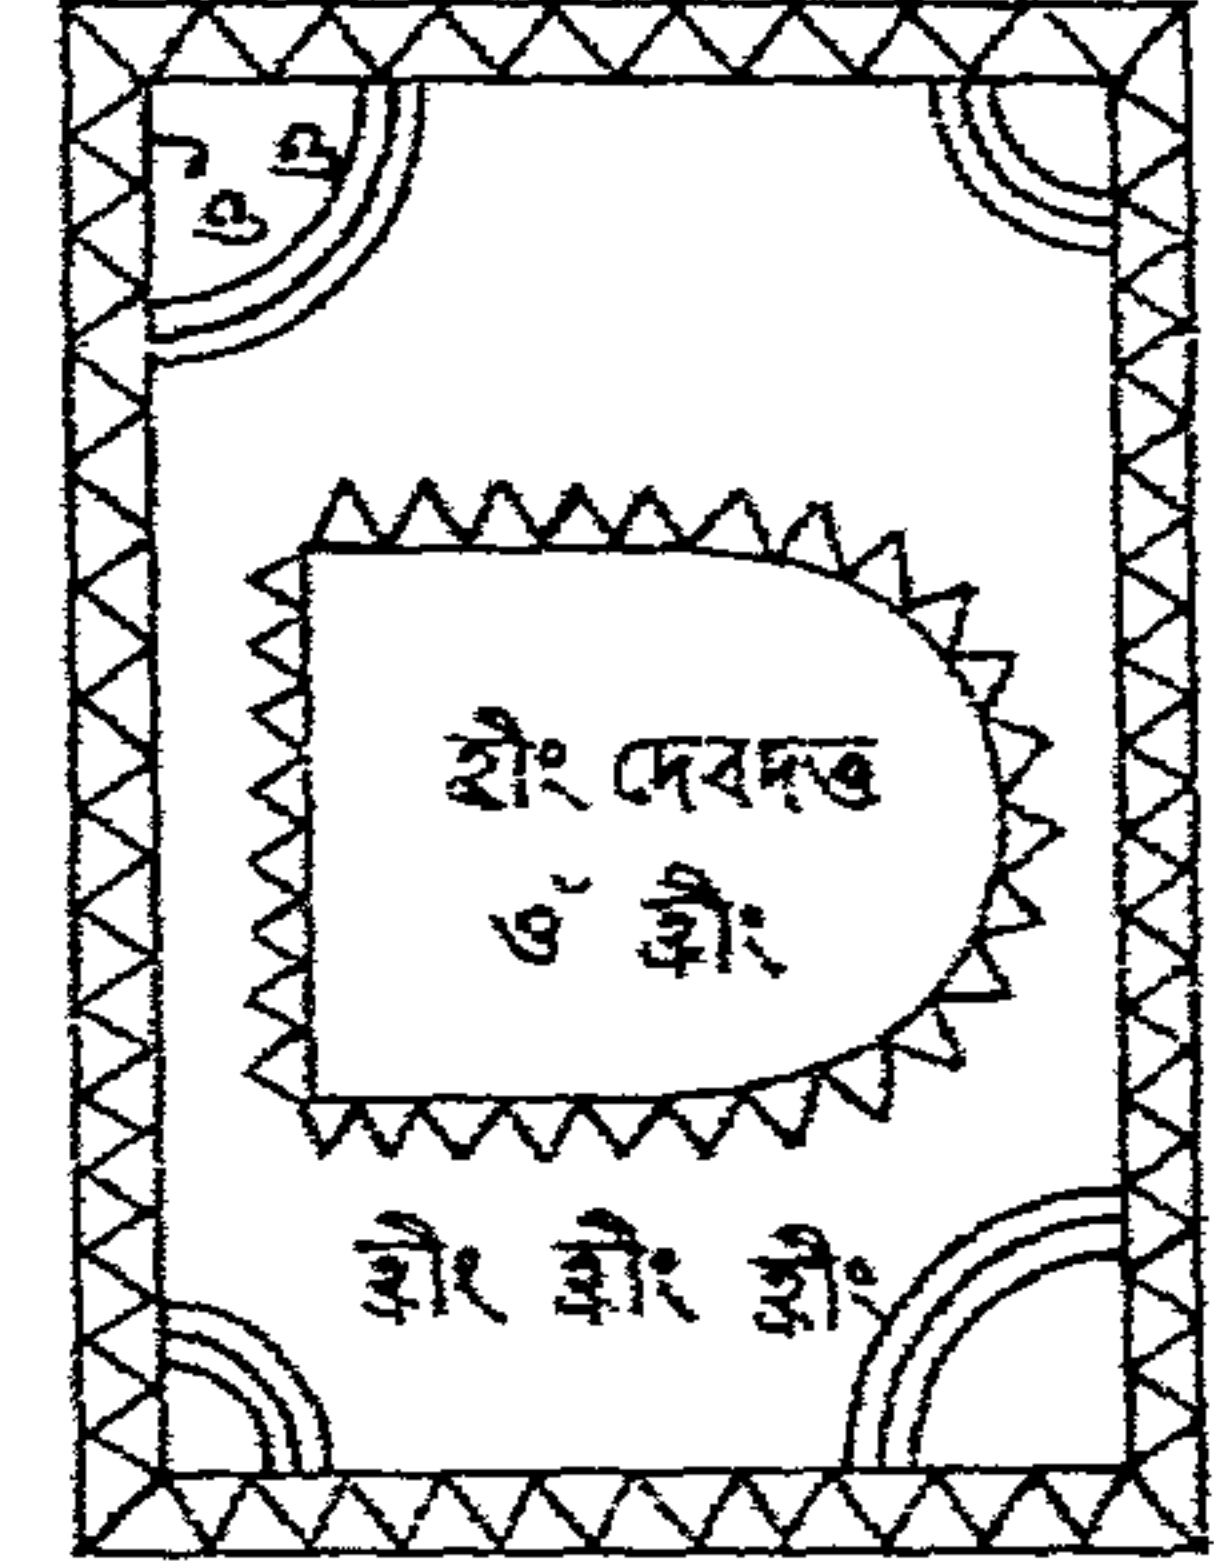 হ্রীং দেবদত্ত
ওঁ হ্রীং
হ্রীং হ্রীং হ্রীং